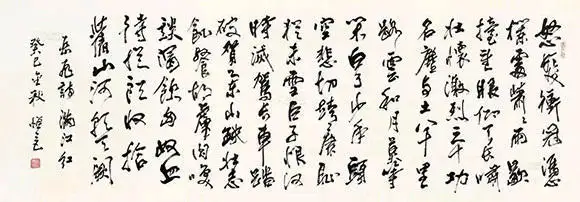 怒髮衝冠憑
欄處瀟瀟雨歇
擡望眼仰天長嘯
壯懷激烈三十功
名塵與土八千里
路雲和月莫等
閑白了少年頭
空悲切靖康恥
猶未雪臣子恨何
時滅駕長車踏
破賀蘭山缺壯志
飢餐胡虜肉笑
談渴飲匈奴血
待從頭收拾
舊山河朝天闕
岳飛詞滿江红
癸巳金秋